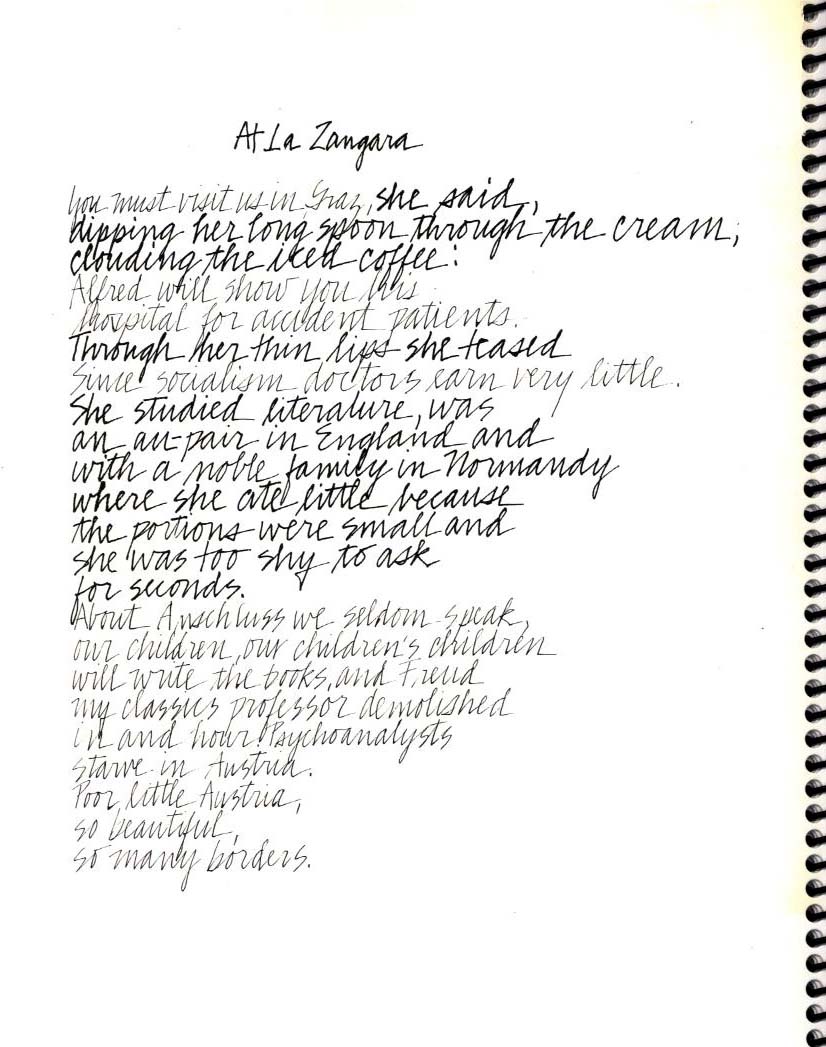 At La Zangara
You must visit us in Graz, she said,
dipping her long spoon through the cream,
clouding the iced coffee:
Alfred will show you his
hospital for accident patients.
Through her thin lips she teased
Since socialism doctors earn very little.
She studied literature, was
an au-pair in England and
with a noble family in Normandy
where she ate little because
the portions were small and
she was too shy to ask
for seconds.
About Anschluss we seldom speak,
our children, our children's children
will write the books, and Freud
my classics professor demolished
in and hour! Psychoanalysts
starve in Austria.
Poor little Austria,
so beautiful,
so many borders.